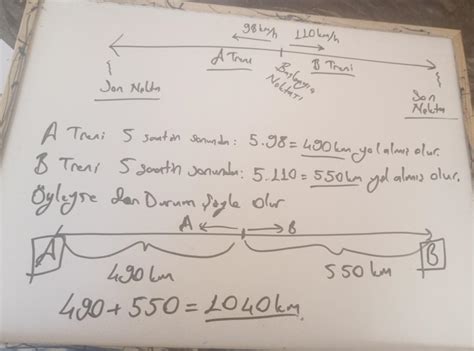 98km/h 110km/h
A Treni Başlangıç Noktası B Treni
Son Nokta
Son Nokta
A Treni 5 saatin sonunda: 5.98=490km yol almış olur.
B Treni 5 saatin sonunda: 5.110=550km yol almış olur.
Öyleyse son Durum şöyle olur
A B
A B
490km 550km
490+550=1040km.